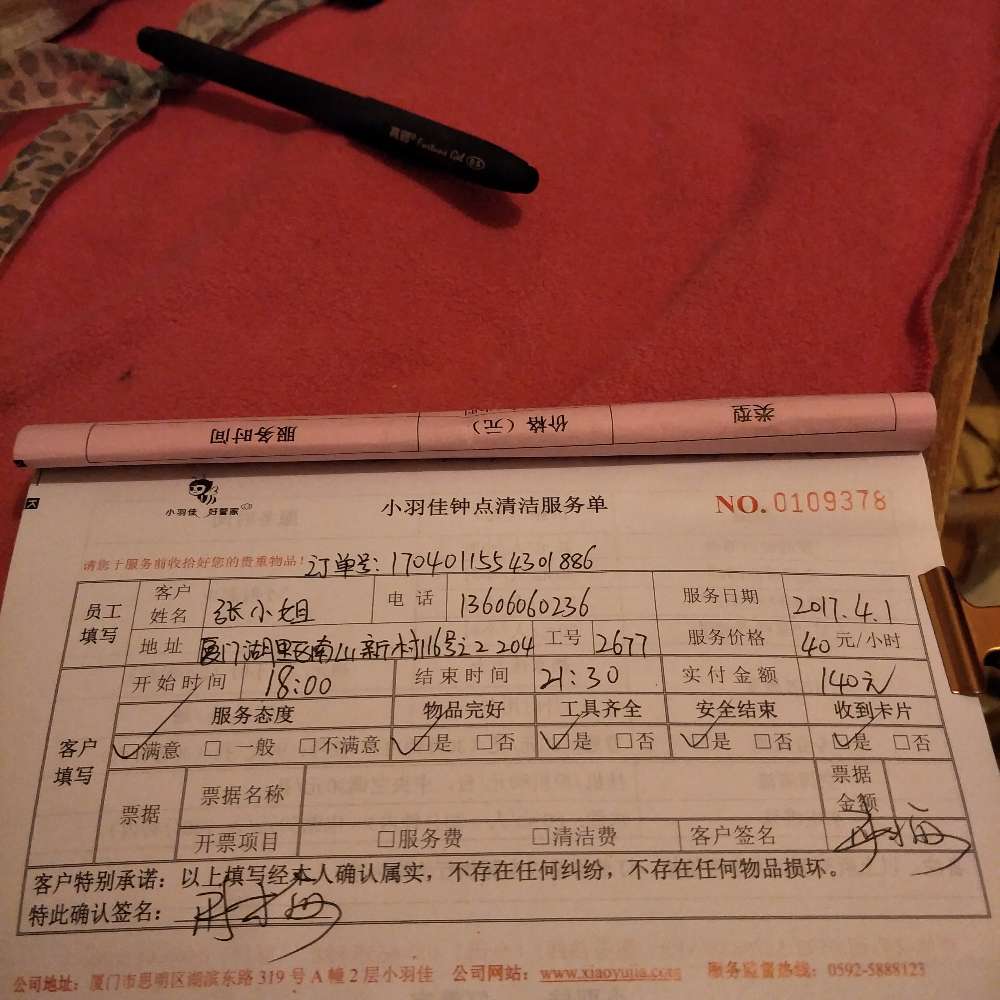 真彩 Fortune Gel 0.5
服务时间 价格（元） 类型
小羽佳 好管家
小羽佳钟点清洁服务单
NO. 0109378
请您于服务前收拾好您的贵重物品！订单号: 1704011554301886
员工填写 客户姓名 张小姐 电话 13606060236 服务日期 2017.4.1
地址 厦门湖里区南山新村116号之2 204 工号 2677 服务价格 40元/小时
客户填写 开始时间 18:00 结束时间 21:30 实付金额 140元
服务态度 物品完好 工具齐全 安全结束 收到卡片
☑满意 □一般 □不满意 ☑是 □否 ☑是 □否 ☑是 □否 ☑是 □否
票据 票据名称 票据金额
开票项目 □服务费 □清洁费 客户签名
客户特别承诺：以上填写经本人确认属实，不存在任何纠纷，不存在任何物品损坏。
特此确认签名：
公司地址：厦门市思明区湖滨东路 319 号 A 幢 2 层小羽佳 公司网站：www.xiaoyujia.com 服务监督热线：0592-5888123